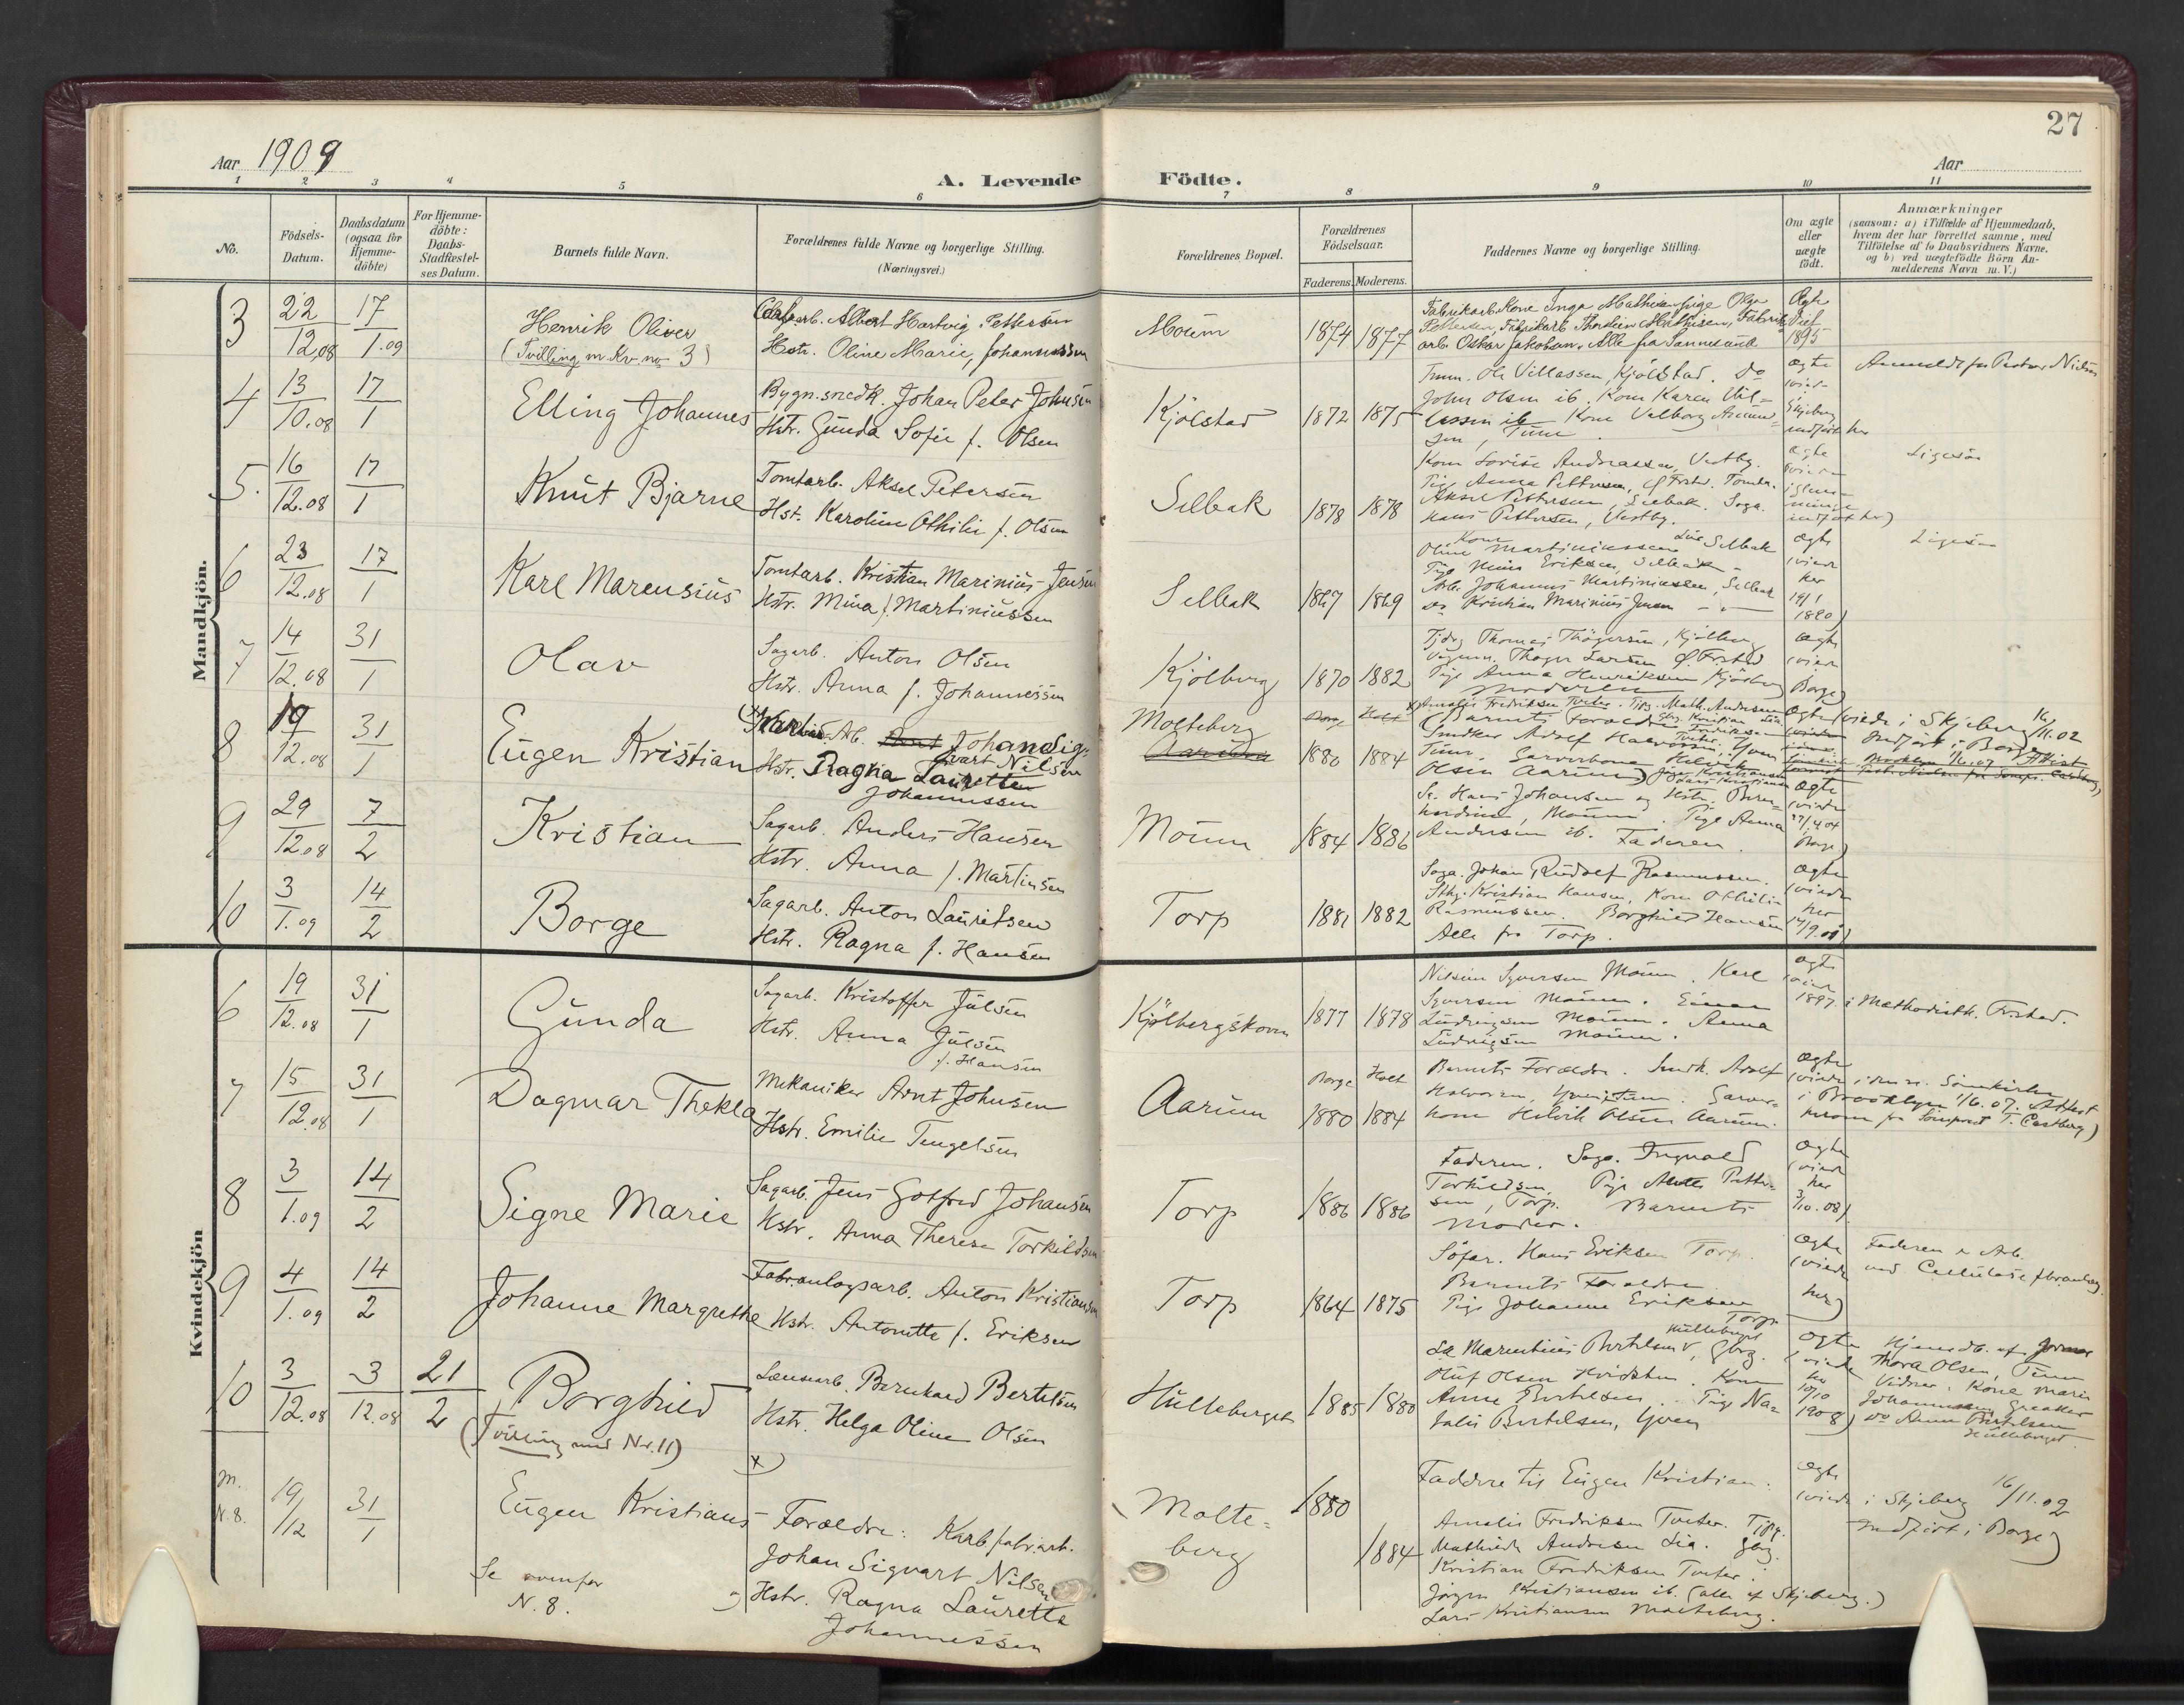 27
Aar 1909
A. Levende Födte.
Aar
1 2 3 4 5 6 7 8 9 10 11
No.
Födsels-Datum.
Daabsdatum (ogsaa for Hjemme-döbte)
For Hjemme-döbte: Daabs-Stadfæstel-ses Datum.
Barnets fulde Navn.
Forældrenes fulde Navne og borgerlige Stilling.
(Næringsvei.)
Forældrenes Bopæl.
Forældrenes Födselsaar.
Faderens. Moderens.
Faddernes Navne og borgerlige Stilling.
Om ægte eller uægte födt.
Anmærkninger
(saasom: a) i Tilfælde af Hjemmedaab,
hvem der har forrettet samme, med
Tilföielse af to Daabsvidners Navne.
og b) ved uægtefödte Börn An-
melderens Navn m. V.)
Mandkjön.
3 22/12.08 17/1.09
Henrik Oliver
(Tvilling m. Kv. no 3)
arb. Albert Hartvig Pettersen
Hstr. Oline Marie, Johannessen
Moum 1874 1877
Fabrikarb. Kone Inga Mathisen, pige Olga
Pettersen, Fabrikarb. Thorstein Mathisen, Fabrik
arb. Oskar Jakobsen. Alle fra Sannesund
Ægte
1895
4 13/10.08 17/1
Elling Johannes
Bygn.snedk. Johan Peter Johnsen
Hstr. Gunda Sofie f. Olsen
Kjölstad 1872 1875
Tmm. Ole Villassen, Kjölstad. Do
John Olsen ib. Kone Karen Vil-
lassen ib Kone Valborg
sen, Tune
ægte
viede
i
Skjeberg
indført her
Anmeldt for Pastor Nielsen
5. 16/12.08 17/1
Knut Bjarne
Tomtarb. Aksel Petersen
Hst. Karoline Othilie f. Olsen
Selbak 1878 1878
Kone Lovise Andreassen, Vestby.
Pige Anna Pettersen, Frstd. Tomta.
Aksel Pettersen, Selbak. Saga.
Hans Pettersen, Vestby.
ægte
viede
indført her)
Ligesaa
6 23/12.08 17/1
Karl Marensius
Tomtarb. Kristian Marinius Jensen
Hstr. Mina f. Martiniussen
Selbak 1867 1869
Kone
Oline Martiniussen Selbak
Pige Mina Eriksen, Selbak
Arb. Johannes Martiniussen, Selbak
do Kristian Marinius Jensen
ægte
(viede
her
19/1
1890)
Ligesaa
7 14/12.08 31/1
Olav
Sagarb. Anton Olsen
Hstr. Anna f. Johannessen
Kjölberg 1870 1882
Thomas Thögersen, Kjölberg
Thøger Larsen Frstad
Pige Anna Henriksen Kjölberg
Moderen
ægte
(viede
Borge)
8 19/12.08 31/1
Eugen Kristian
Arb. Arnt Johan Sig-
vart Nilsen
Hstr. Ragna Lauretta
Johannessen
Molteberg
Aarum
Borge Holt
1880 1884
Amalie Fredriksen Tveter. Tjpg. Math. Andresen
Barnets Forældre
Snedker Adolf Halvorsen, Yven
Tune. Garverkone Helvik
Olsen Aarum
Ægte (viede i Skjeberg 16/11.02
Indført i Borge)
Brooklyn 1/6.07 Attest
9 29/12.08 7/2
Kristian
Sagarb. Anders Hansen
Hstr. Anna f. Martinsen
Moum 1884 1886
Hans Johansen og Hstr. Beren-
hardine, Moum. Pige Anna
Andersen ib. Faderen.
ægte
(viede
17/4.04
Borge)
10 3/1.09 14/2
Borge
Sagarb. Anton Lauritsen
Hstr. Ragna f. Hansen
Torp 1881 1882
Saga. Johan Rudolf Rasmussen.
Kristian Hansen, Kone Othilie
Rasmussen. Borghild Hansen
Alle fra Torp.
ægte
(viede
her
Kvindekjön
6 19/12.08 31/1
Gunda
Sagarb. Kristoffer Julsen
Hstr. Anna Julsen
f. Hansen
Kjölbergskoven 1877 1878
Nilsine Syversen Moum. Karl
Syversen Moum. Einar
Ludvigsen Moum. Anna
Ludvigsen Moum.
ægte
viede
1897. i Methodistk. Frstad.
7 15/12.08 31/1
Dagmar Thekla
Mekaniker Arnt Johnsen
Hstr. Emilie Tengelsen
Aarum
Borge Holt
1880 1884
Barnets Forældre. Snedk. Adolf
Halvorsen, Yven, Tune. Garver-
kone Helvik Olsen Aarum.
ægte
(viede i den n. Sömkirke
i Brooklyn 1/6.07. Attest
herom fra Sömprest T. Castberg)
8 3/1.09 14/2
Signe Marie
Sagarb. Jens Gotfred Johansen
Hstr. Anna Therese Torkildsen
Torp 1886 1886
Faderen. Saga. Ingvald
Torkildsen, Pige Petter-
sen, Torp. Barnets
Moder.
ægte
(viede
her
3/10.08)
9 4/1.09 14/2
Johanne Margrethe
Fabr.anlægsarb. Anton Kristiansen
Hstr. Antonette f. Eriksen
Torp 1864 1875
Söfar. Hans Eriksen Torp.
Barnets Forældre
Pige Johanne Eriksen
Torp
ægte
(viede
her)
Faderen er Arb.
ved Cellulosefbranlæg.
10 3/12.08 3/12.08 21/2
Borghild
(Tvilling med Nr. 11)
Lænsearb. Bernhard Bertelsen
Hstr. Helga Oline Olsen
Hulleberget 1885 1880
Hulleberget
Marentius Bertelsen, Gbrg.
Oluf Olsen Hvidsten. Kone
Anne Bertelsen. Pige Na-
talie Bertelsen, Yven
ægte
(viede
her
10/10
1908)
Hjemmedb. af Jormor
Thora Olsen, Tune
Vidner. Kone Marie
Johannesen, Greaker
do Anne Bertelsen
Hulleberget.
M.
N. 8. 19/12 31/1
Eugen Kristian
Se ovenfor
N. 8.
x)
Forældre: Karbfabr.arb.
Johan Sigvart Nilsen
Hstr. Ragna Lauretta
Johannessen
Molte-
berg
1880
1884
Faddere til Eugen Kristian.
Amalie Fredriksen Tveter. Tjpg.
Mathilde Andresen Lia. Gbrg.
Kristian Fredriksen Tveter.
Jörgen Kristiansen ib. (alle af Skjeberg.)
Lars Kristiansen Molteberg.
ægte
(viede i Skjeberg 16/11.02
Indført i Borge)